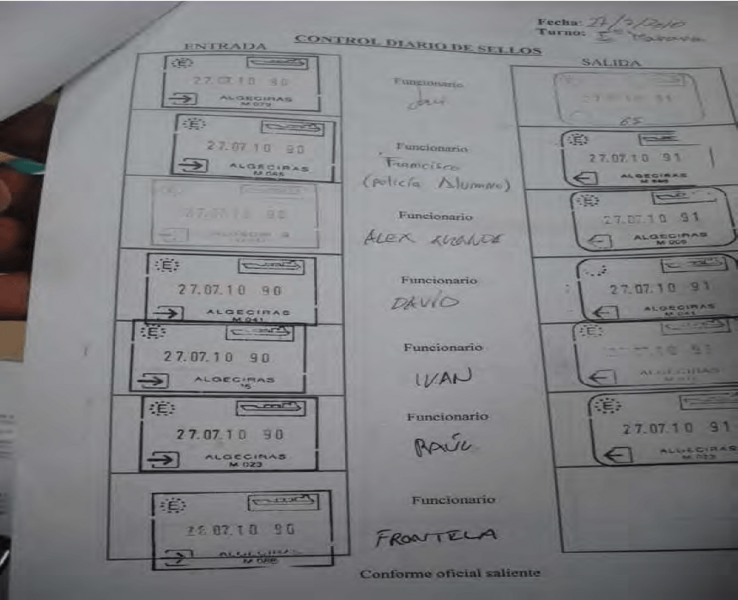 Fecha: 27/7/2010
Turno: Iº Mañana
CONTROL DIARIO DE SELLOS
ENTRADA
SALIDA
E
27.07.10 90
ALGECIRAS
M 079
Funcionario
27.07.10 91
65
E
27.07.10 90
ALGECIRAS
Funcionario
Francisco
(policía Alumno)
27.07.10 91
ALGECIRAS
27.07.10 90
Funcionario
ALEX
E
27.07.10 91
ALGECIRAS
E
27.07.10 90
ALGECIRAS
M 041
Funcionario
DAVID
27.07.10 91
ALGECIRAS
M 041
E
27.07.10 90
ALGECIRAS
Funcionario
IVAN
ALGECIRAS
E
27.07.10 90
ALGECIRAS
M 023
Funcionario
RAÚL
E
27.07.10 91
ALGECIRAS
M 023
E
07.10 90
ALGECIRAS
Funcionario
FRONTELA
Conforme oficial saliente